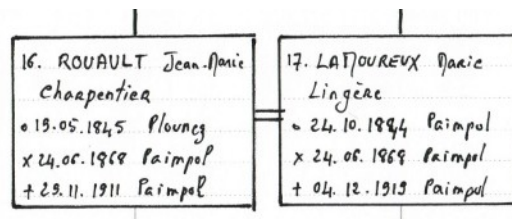 16. ROUAULT Jean-Marie
Charpentier
o 19.05.1845 Plouncz
x 24.06.1868 Paimpol
+ 29.11.1911 Paimpol
17. LAMOUREUX Marie
Lingère
o 24.10.1844 Paimpol
x 24.06.1868 Paimpol
+ 04.12.1919 Paimpol